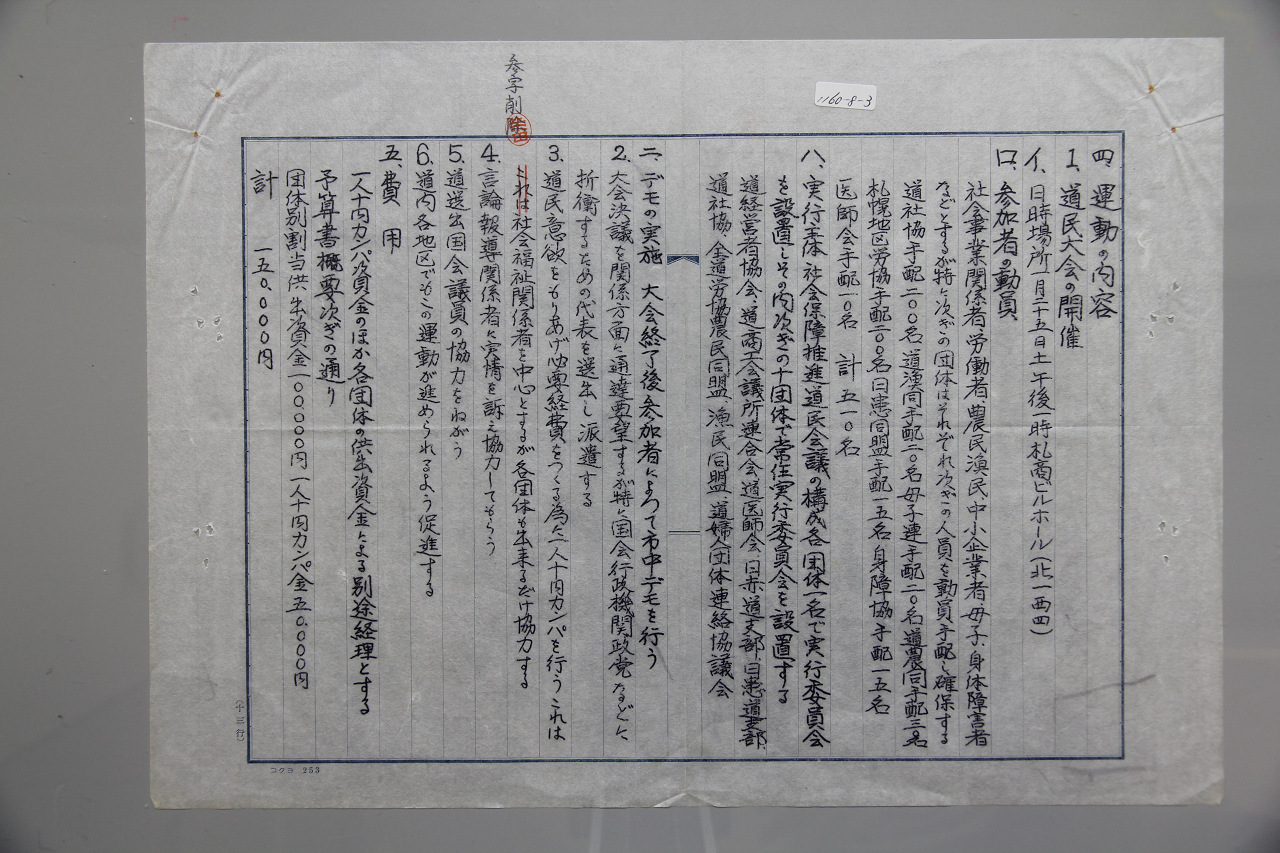 1160-8-3
参字削除
四、運動の内容
1、道民大会の開催
イ、日時場所 一月二十五日土午後一時札商ビルホール(北一西四)
ロ、参加者の動員
社会事業関係者、労働者、農民漁民、中小企業者、母子、身体障害者
などとするが特に次ぎの団体はそれぞれ次ぎの人員を動員手配し確保する
道社協手配二〇〇名 道漁同手配二〇名 母子連手配二〇名 道農同手配三名
札幌地区労協手配二〇〇名 日患同盟手配一五名 身障協手配一五名
医師会手配一〇名 計五一〇名
ハ、実行主体 社会保障推進道民会議の構成各団体一名で実行委員会
を設置しその内次ぎの十団体で常任実行委員会を設置する
道経営者協会、道商工会議所連合会、道医師会、日赤道支部、日患道支部、
道社協、全道労協、農民同盟、漁民同盟、道婦人団体連絡協議会
ニ、デモの実施 大会終了後参加者によつて市中デモを行う
2、大会決議を関係方面に通達要望するが特に国会行政機関政党などに
折衝するための代表を選出し派遣する
3、道民意欲をもりあげ必要経費をつくる為に一人十円カンパを行うこれは
これは社会福祉関係者を中心とするが各団体も出来るだけ協力する
4、言論報導関係者に実情を訴え協力してもらう
5、道選出国会議員の協力をねがう
6、道内各地区でもこの運動が進められるよう促進する
五、費用
一人十円カンパ資金のほか各団体の供出資金による別途経理とする
予算書概要次ぎの通り
団体別割当供出資金一〇〇〇〇〇円 一人十円カンパ金五〇.〇〇〇円
計 一五〇.〇〇〇円
(十三行)
コクヨ 253